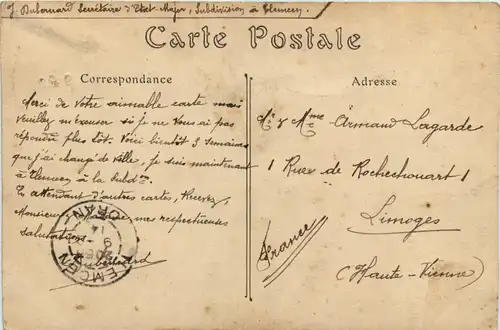 J. Dubernard Secrétaire d'Etat-Major, Subdivision à Tlemcen
Carte Postale
Correspondance
Merci de votre aimable carte mais
veuillez m'excuser si je ne vous ai pas
répondu plus tôt. Voici bientôt 3 semaines
que j'ai changé de ville, je suis maintenant
à Tlemcen à la Subd.
En attendant d'autres cartes, Recevez,
Monsieur, mes respectueuses
salutations.
Dubernard
TLEMCEN
ORAN
Adresse
Mr & Mme Armand Lagarde
1 Rue de Rochechouart 1
Limoges
France
(Haute-Vienne)